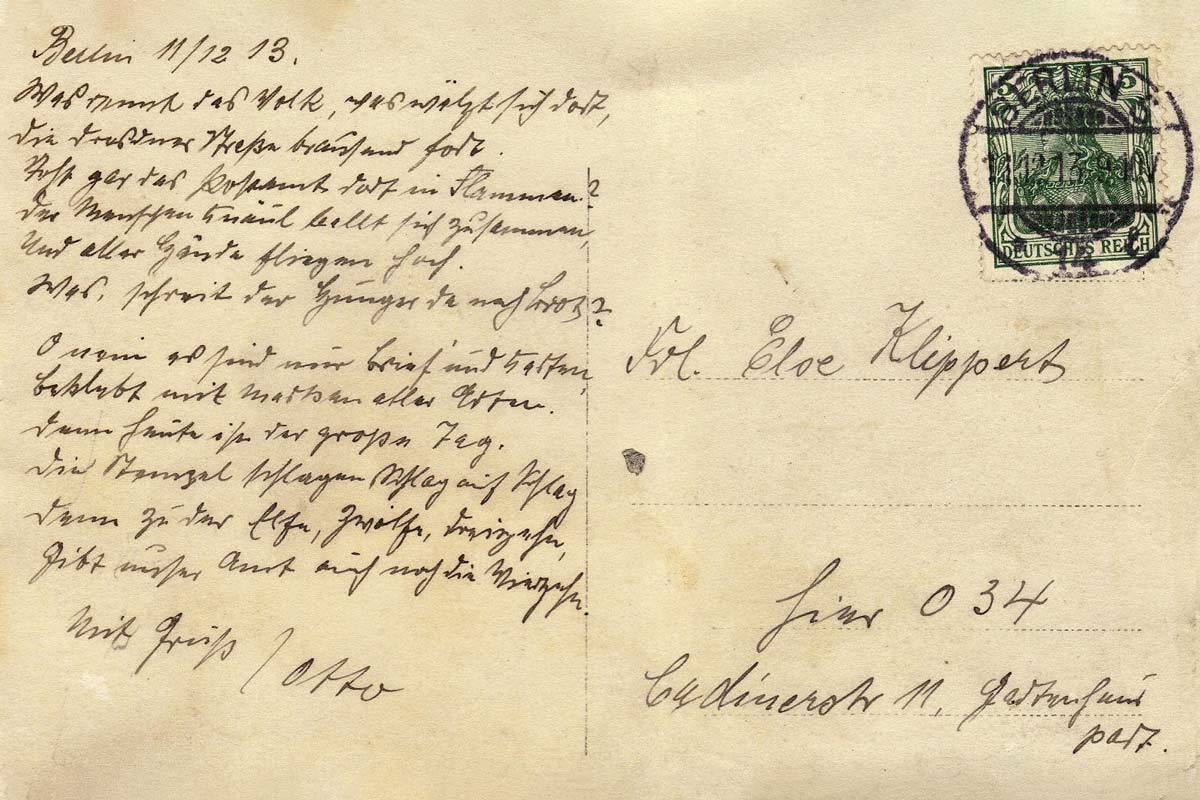 Berlin 11/12 13.
Was rennt das Volk, was wälzt sich dort,
die Dresdner Straße brausend fort.
Steht gar das Postamt dort in Flammen?
der Menschen Knäul ballt sich zusammen,
Und aller Hände fliegen hoch.
Was, schreit der Hunger da nach Brot?
O nein es sind nur Brief und Karten,
beklebt mit Marken aller Arten.
denn heute ist der große Tag.
die Stempel schlagen Schlag auf Schlag
denn zu der Elfe, Zwölfe, dreizehn,
Gibt unser Amt auch noch die Vierzehn.
Mit Gruß / Otto
5
DEUTSCHES REICH
BERLIN
11.12.13. 9-10V
14
Frl. Else Klippert
hier O 34
Cadinerstr 11, Gartenhaus
part.